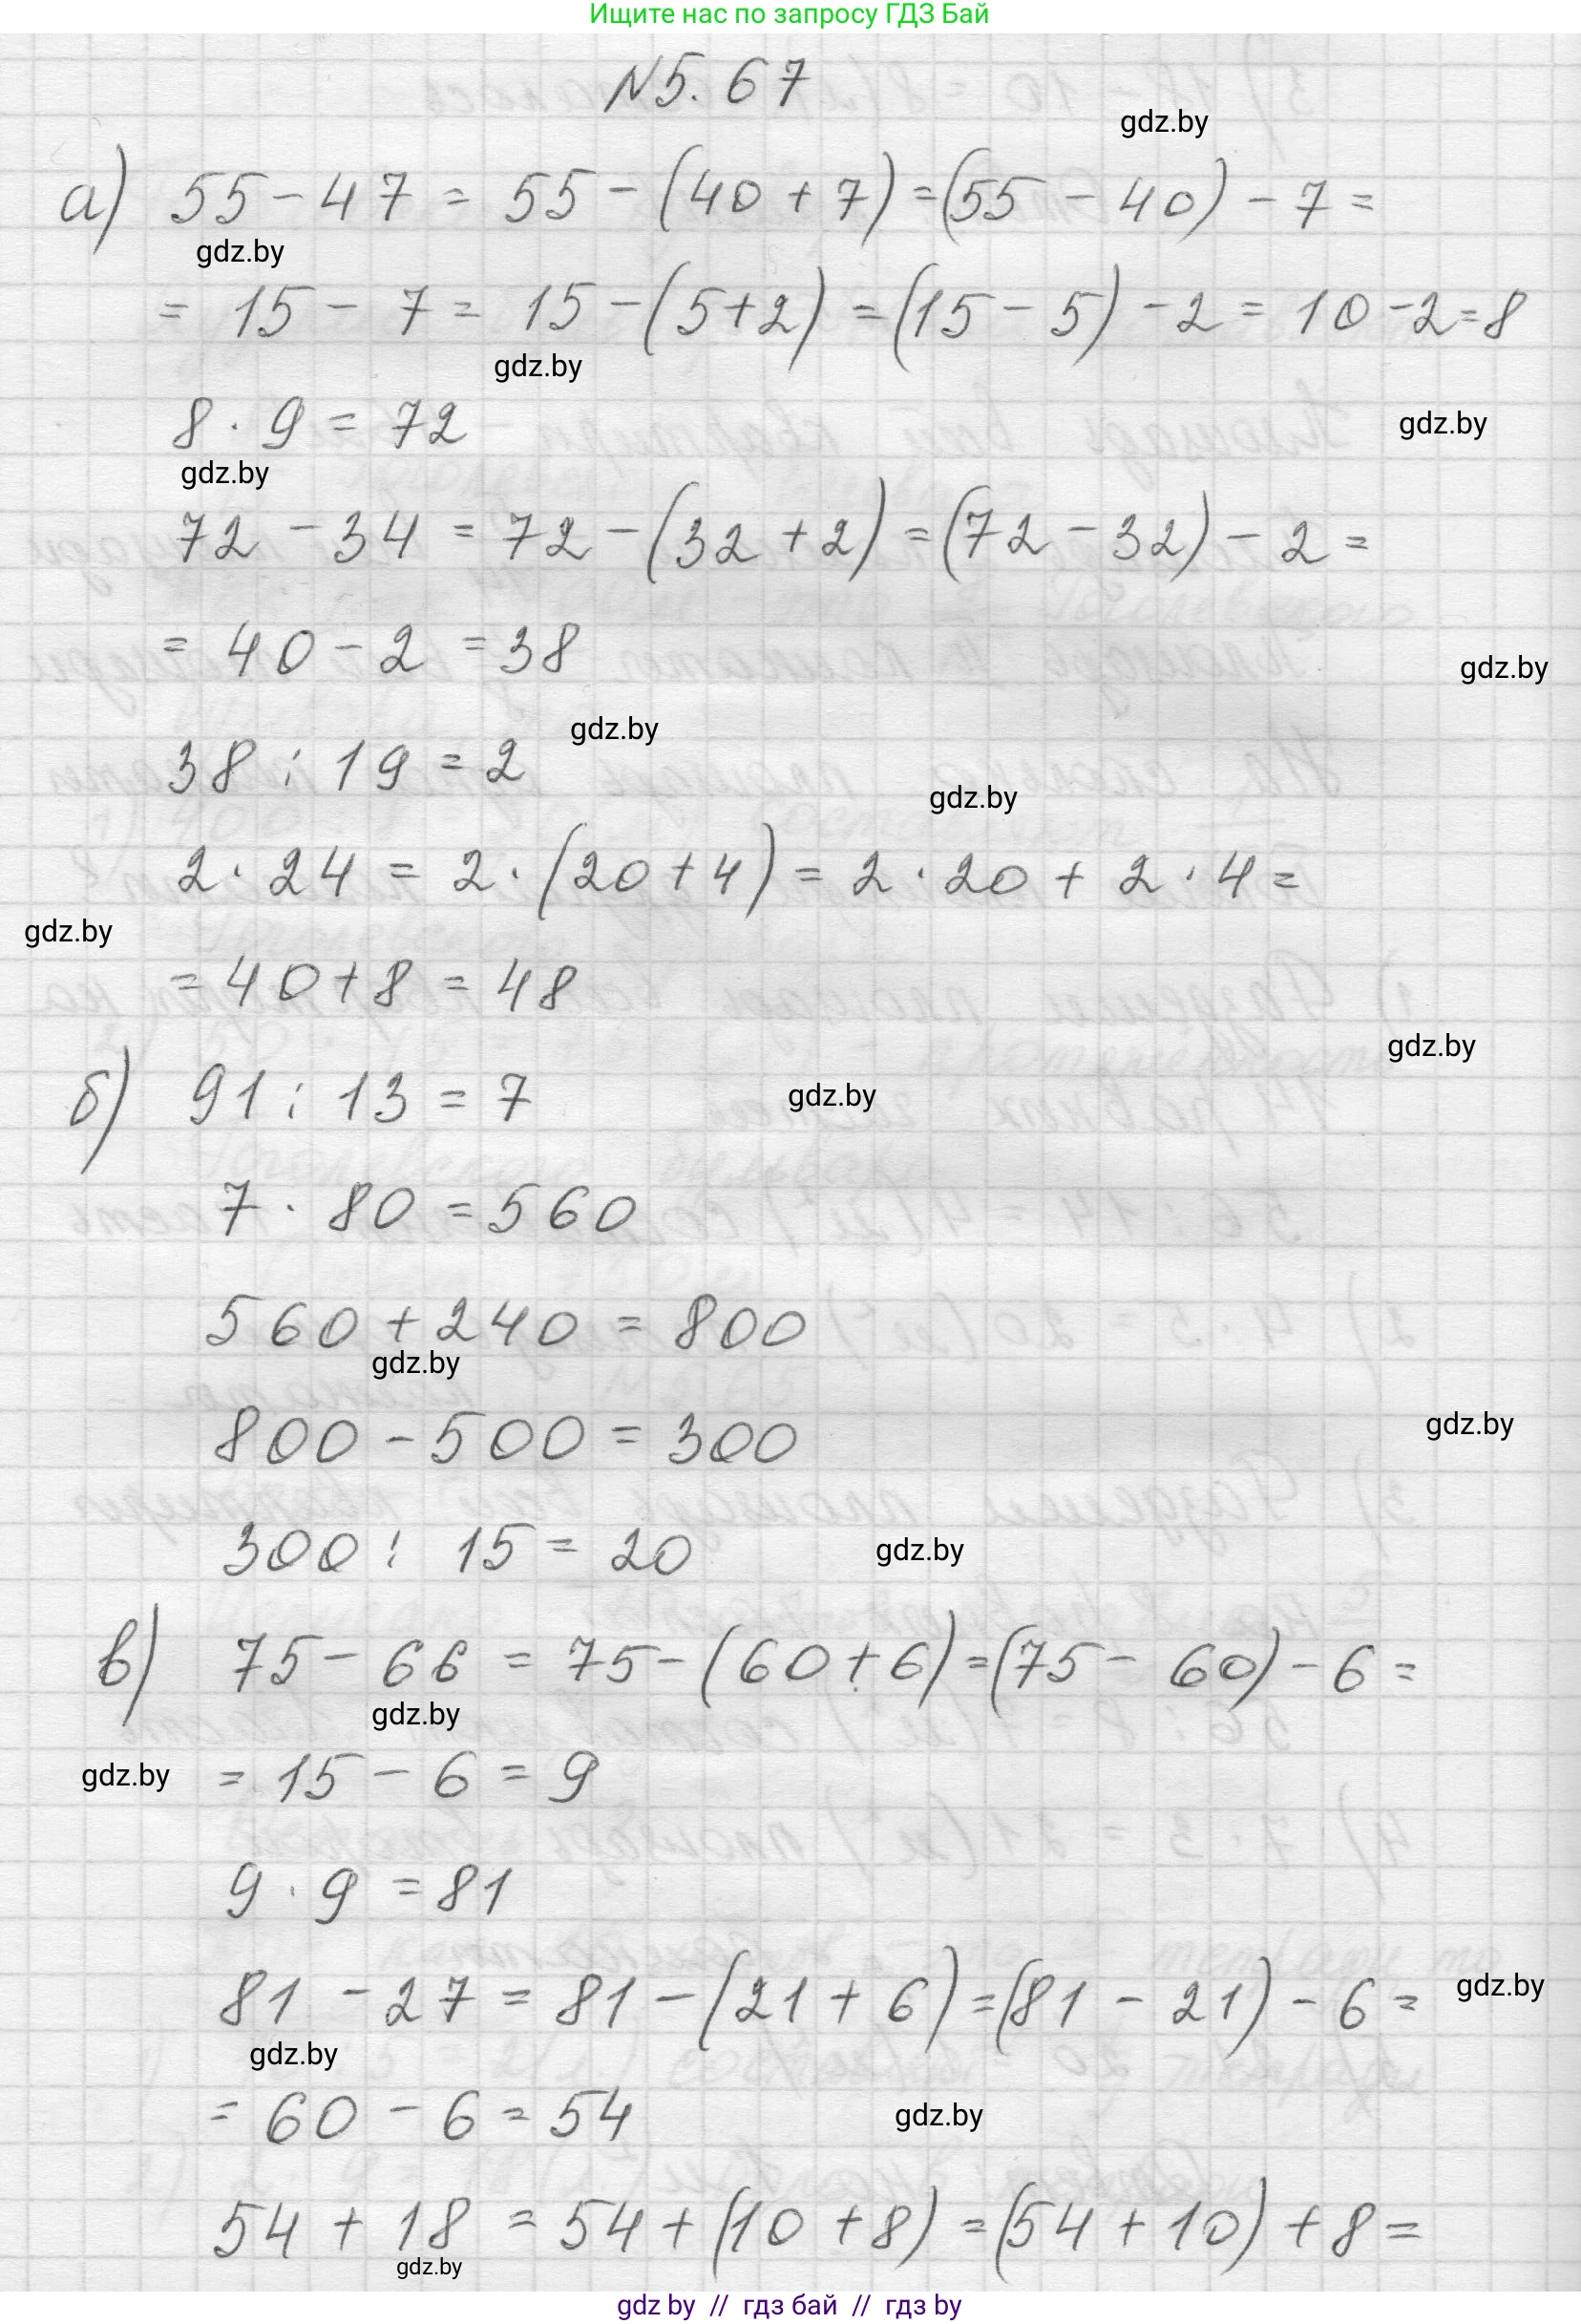 Ищите нас по запросу ГДЗ Бай
N5.67
gdz.by
а) 55 - 47 = 55 - (40 + 7) = (55 - 40) - 7 =
gdz.by
= 15 - 7 = 15 - (5+2) = (15 - 5) - 2 = 10 - 2 = 8
gdz.by
8 · 9 = 72
gdz.by
gdz.by
72 - 34 = 72 - (32 + 2) = (72 - 32) - 2 =
= 40 - 2 = 38
gdz.by
gdz.by
38 : 19 = 2
gdz.by
2 · 24 = 2 · (20 + 4) = 2 · 20 + 2 · 4 =
gdz.by
= 40 + 8 = 48
gdz.by
б) 91 : 13 = 7
gdz.by
7 · 80 = 560
560 + 240 = 800
gdz.by
800 - 500 = 300
gdz.by
300 : 15 = 20
gdz.by
в) 75 - 66 = 75 - (60 + 6) = (75 - 60) - 6 =
gdz.by
gdz.by
= 15 - 6 = 9
9 · 9 = 81
81 - 27 = 81 - (21 + 6) = (81 - 21) - 6 =
gdz.by
gdz.by
= 60 - 6 = 54
gdz.by
54 + 18 = 54 + (10 + 8) = (54 + 10) + 8 =
gdz.by
gdz by // гдз бай // гдз by